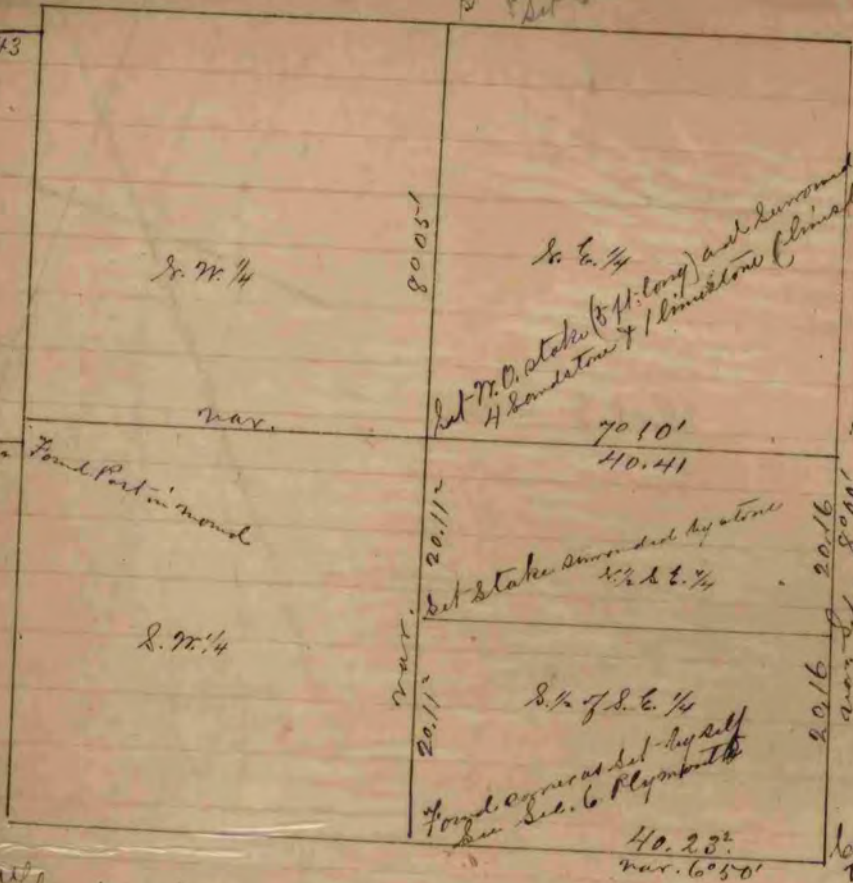 43
Set
N. W. 1/4
8° 05'
N. E. 1/4
Set W. O. stake (5 ft. long) and surround
4 Sandstone & 1 limestone
var.
7° 10'
40.41
Found Post in mound
20.11²
Set Stake surrounded by stone
N. 1/2 S. E. 1/4
20.16
8° 00'
S. W. 1/4
var.
20.11²
S. 1/2 of S. E. 1/4
20.16
Found corner as Set by self
See Sec. 6 Plymouth
40.23²
var. 6° 50'